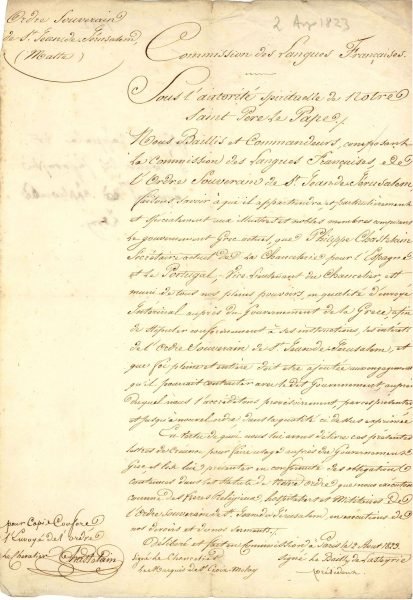 2 Aug 1823
Ordre Souverain
de St. Jean de Jérusalem
(Malte)
Commission des Langues Françaises.
Sous l'autorité spirituelle de Notre
Saint Père le Pape,
Nous Baillis et Commandeurs, composant
la Commission des Langues Françaises, de
l'Ordre Souverain de St. Jean de Jérusalem
faisons savoir à qui il appartiendra, et particulièrement
et spécialement aux illustres et nobles membres composant
le gouvernement Grec actuel, que Philippe Chastelain
Secrétaire actuel de la Chancelerie pour l'Espagne
et le Portugal, Vice-Lieutenant du Chancelier, est
muni de tous nos pleins pouvoirs, en qualité d'envoyé
auprès du Gouvernement de la Grèce, afin
de stipuler conformément à ses instructions, les intérets
de l'Ordre Souverain de St. Jean de Jérusalem, et
que foi pleine et entière doit être ajoutée aux engagemens
qu'il pourrait contracter avec le dit Gouvernement auprès
duquel nous l'accréditons provisoirement, par ces présentes
et jusqu'à nouvel ordre
En foi de quoi, nous lui avons délivré ces présentes
lettres de pour faire usage auprès du Gouvernement
Grec et les lui présenter en conformité des obligations
contenues dans les statuts de notre ordre que nous exécutons
comme frères Religieux, hospitaliers et Militaires de
l'Ordre Souverain de St. Jean de Jérusalem, en exécution de
nos devoirs et de nos sermens.
Délibéré et fait en Commission à Paris le 2 Aout 1823.
pour Copie Conforme
l'Envoyé de l'ordre
le Chevalier Chastelain
signé le Bailly de Lasteyrie
signé le
le Marquis de Ste Croix Molay